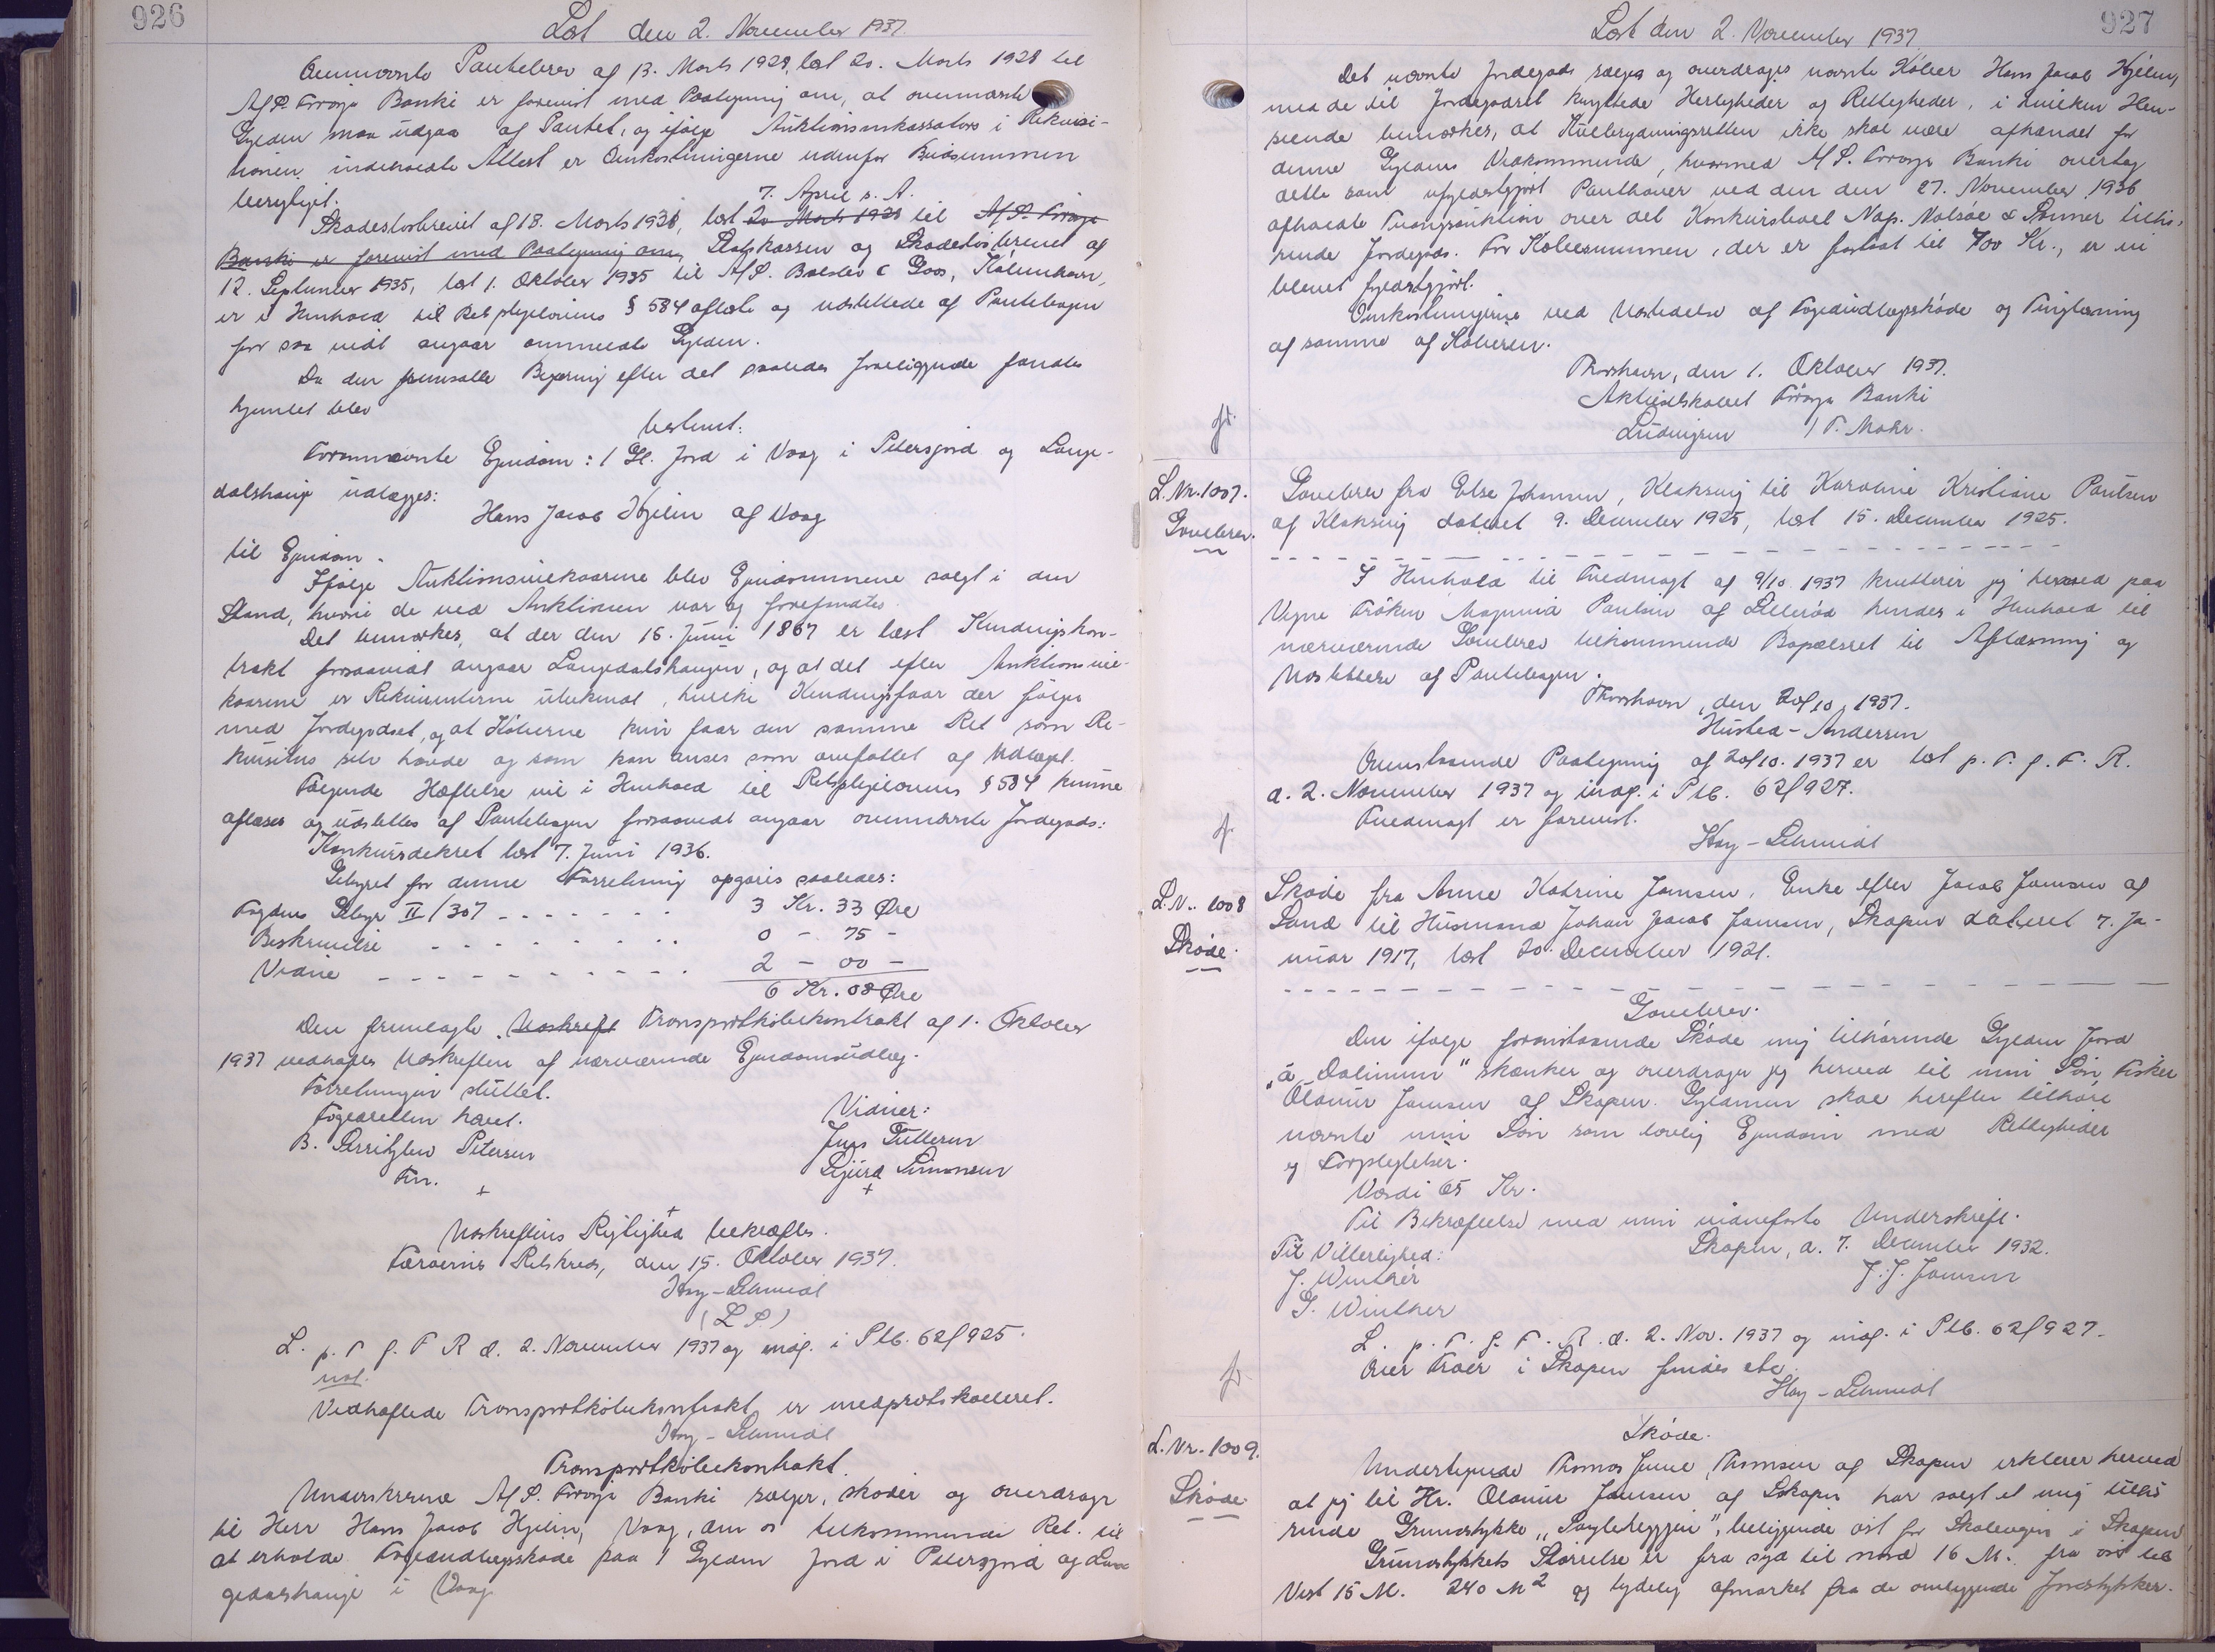 926
Læst den 2. November 1937.
Omnævnte Pantebrev af 13. Marts 1928, læst 20. Marts 1928 til
A/S. Föroya Banki er forevist med Paategning om, at ovennævnte
Gylden maa udgaa af Pantet, og ifølge Auktionsinkassators i Rekvisi-
tionen indeholdte Attest er Omkostningerne udenfor Budsummen
berigtiget.
7. April s. A.
Skadesløsbrevet af 18. Marts 1938, læst 20 Marts 1928 til A/S. Föroya
Banki er forevist med Paategning om, Statskassen og Skadesløsbrevet af
12. September 1935, læst 1. Oktober 1935 til A/S. Balslev & Goos, København,
er i Henhold til Retsplejelovens § 584 aflæste og udslettede af Pantebogen
for saa vidt angaar ommeldte Gylden.
Da den fremsatte Begæring efter det saaledes foreliggende fandtes
hjemlet blev
bestemt:
Forannævnte Ejendom: 1 Gl. Jord i Vaag i Petersjord og Lange-
dalshauje udlægges:
Hans Jacob Hjelm af Vaag
til Ejendom.
Ifølge Auktionsvilkaarene blev Ejendommene solgt i den
Stand, hvori de ved Auktionen var og forefandtes.
Det bemærkes, at der den 16. Juni 1867 er læst Kendingskon-
trakt forsaavidt angaar Langedalshaugen, og at det efter Auktionsvil-
kaarene er Rekvirenterne ubekendt, hvilke Kendingsfaar der følger
med Jordegodset, og at Køberne kun faar den samme Ret som Re-
kvisitus selv havde og som kan anses som omfattet af Udlægt.
Følgende Hæftelse vil i Henhold til Retsplejelovens § 584 kunne
aflæses og udslettes af Pantebogen forsaavidt angaar ovennævnte Jordegods:
Konkursdekret læst 7. Juni 1936.
Gebyret for denne Forretning opgøres saaledes:
Fogdens Gebyr II/307 - - - - - - - 3 Kr. 33 Øre
Beskrivelse - - - - - - - - - 0 - 75 -
Vidne - - - - - - - - - - - 2 - 00 -
6 Kr. 08 Øre
Den fremlagte Udskrift Transportkøbekontrakt af 1. Oktober
1937 vedhæftes Udskriften af nærværende Ejendomsudlæg.
Forretningen sluttet.
Fogedretten hævet.
Vidner:
B. Serritzlev Petersen
Jens Tullesen
Fm.
Sjúrd Simonsen
+ +
+
Udskriftens Rigtighed bekræftes.
Færøernes Retskreds, den 15. Oktober 1937.
Høy-Schmidt
(L. S.)
L. p. T. f. F. R. d. 2. November 1937 og indf. i Ptb. 62f925.
not.
Vedhæftede Transportkøbekontrakt er medprotokolleret.
Høy-Schmidt
Transportkøbekontrakt.
Underskrevne A/S. Föroya Banki sælger, skøder og overdrager
til Herr Hans Jacob Hjelm, Vaag, den os tilkommende Ret til
at erholde Fogedudlægsskøde paa 1 Gylden Jord i Petersjord og Lan-
gedalshauje i Vaag.
927
Læst den 2. November 1937
Det nævnte Jordegods sælges og overdrages nævnte Køber Hans Jacob Hjelm,
med de til Jordegodset knyttede Herligheder og Rettigheder, i hvilken Hen-
seende bemærkes, at Kulbrydningsretten ikke skal være afhændet for
denne Gyldens Vedkommende, hvormed A/S. Föroya Banki overtog
dette som ufyldestgjort Panthaver ved den den 27. November 1936
afholdte Tvangsauktion over det Konkursboet Nap. Nolsøe & Sønner tilhø-
rende Jordegods. For Købesummen, der er fastsat til 700 Kr., er vi
blevet fyldestgjort.
Omkostningerne ved Udstedelse af Fogedudlægsskøde og Tinglæsning
af samme af Køberen.
Thorshavn, den 1. Oktober 1937.
Aktieselskabet Föroya Banki
Ludvigsen / P. Mohr.
L. Nr. 1007.
Gavebrev.
Gavebrev fra Else Johansen, Klaksvig til Karoline Kristiane Poulsen
af Klaksvig dateret 9. December 1925, læst 15. December 1925.
I Henhold til Fuldmagt af 9/10 1937 kvitterer jeg herved paa
Vegne Frøken Magnild Poulsen af Lillerød hendes i Henhold til
nærværende Gavebrev tilkommende Bopælsret til Aflæsning og
Udslettelse af Pantebogen.
Thorshavn, den 20/10 1937.
Husted-Andersen
Ovenstaaende Paategning af 20/10. 1937 er læst p. T. f. F. R.
d. 2. November 1937 og indf. i Ptb. 62f927.
Fuldmagt er forevist.
Høy-Schmidt
L. N. 1008
Skøde.
Skøde fra Anne Katrine Jensen, Enke efter Jacob Jensen af
Sand til Husmand Johan Jacob Jensen, Skopun dateret 7. Ja-
nuar 1917, læst 20. December 1921.
Gavebrev.
Den ifølge foranstaaende Skøde mig tilhørende Gylden Jord
„á Dalinum" skænker og overdrager jeg herved til min Søn Fisker
Ólavur Jensen af Skopun. Gyldenen skal herefter tilhøre
nævnte min Søn som lovlig Ejendom med Rettigheder
og Forpligtelser.
Værdi 65 Kr.
Til Bekræftelse med min vidnefaste Underskrift.
Til Vitterlighed:
Skopun, d. 7. December 1932.
J. Winther
J. J. Jensen
G. Winther
L. p. T. f. F. R. d. 2. Nov. 1937 og indf. i Ptb. 62f927.
Over Traer i Skopun findes ebc.
Høy-Schmidt
L. Nr. 1009.
Skøde
Skøde.
Undertegnede Thomas Juul Thomsen af Skopun erklærer herved
at jeg til Hr. Olavur Jensen af Skopun har solgt et mig tilhø
rende Grundstykke „ ", beliggende øst for Skolevegin i Skopun
Grundstykkets Størrelse er fra syd til nord 16 M. fra øst til
Vest 15 M. 240 M² og tydelig afmærket fra de omliggende Jordstykker.